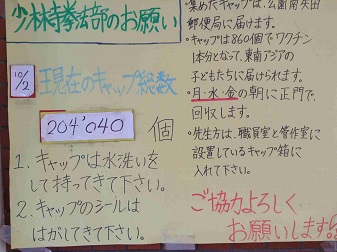 少林寺拳法部のお願い
10/2
現在のキャップ総数
204'040 個
1. キャップは水洗いを
して持ってきて下さい。
2. キャップのシールは
はがしてきて下さい。
・集めたキャップは、公園南矢田
郵便局に届けます。
・キャップは860個でワクチン
1本分となって、東南アジアの
子どもたちに届けられます。
・月・水・金の朝に正門で、
回収します。
・先生方は、職員室と管作室に
設置しているキャップ箱に
入れて下さい。
ご協力よろしく
お願いします!